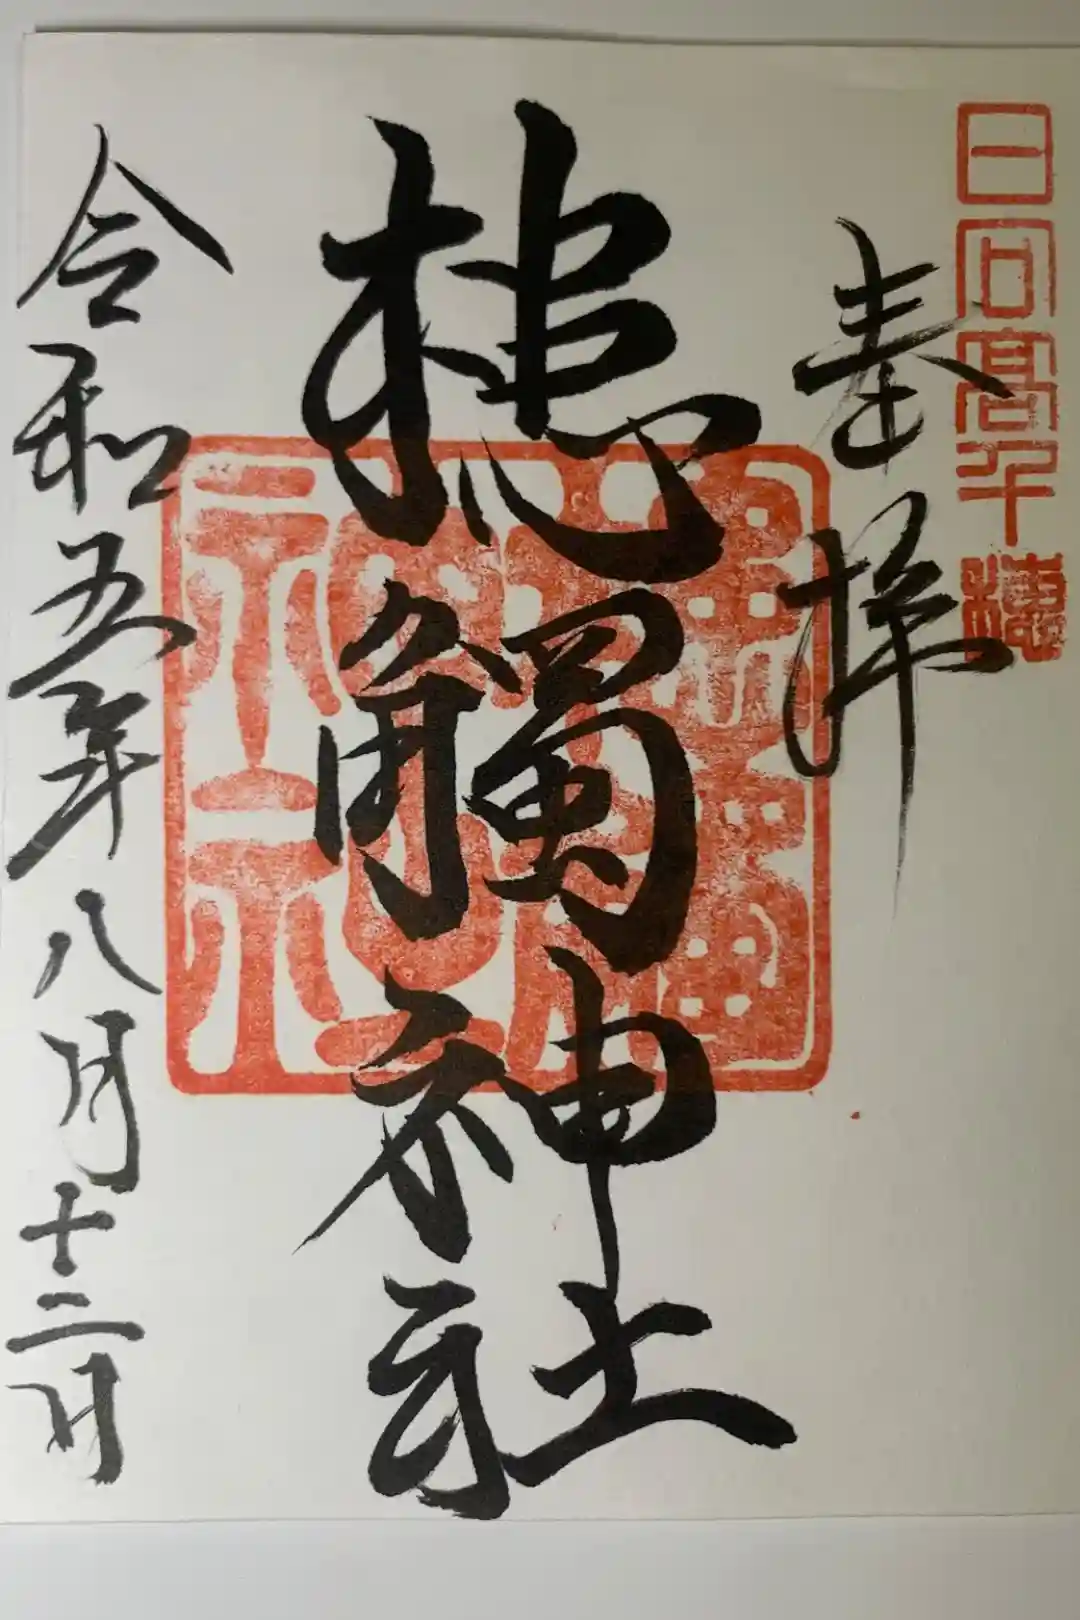 日向高千穂
奉拝
槵觸神社
令和五年八月十二日